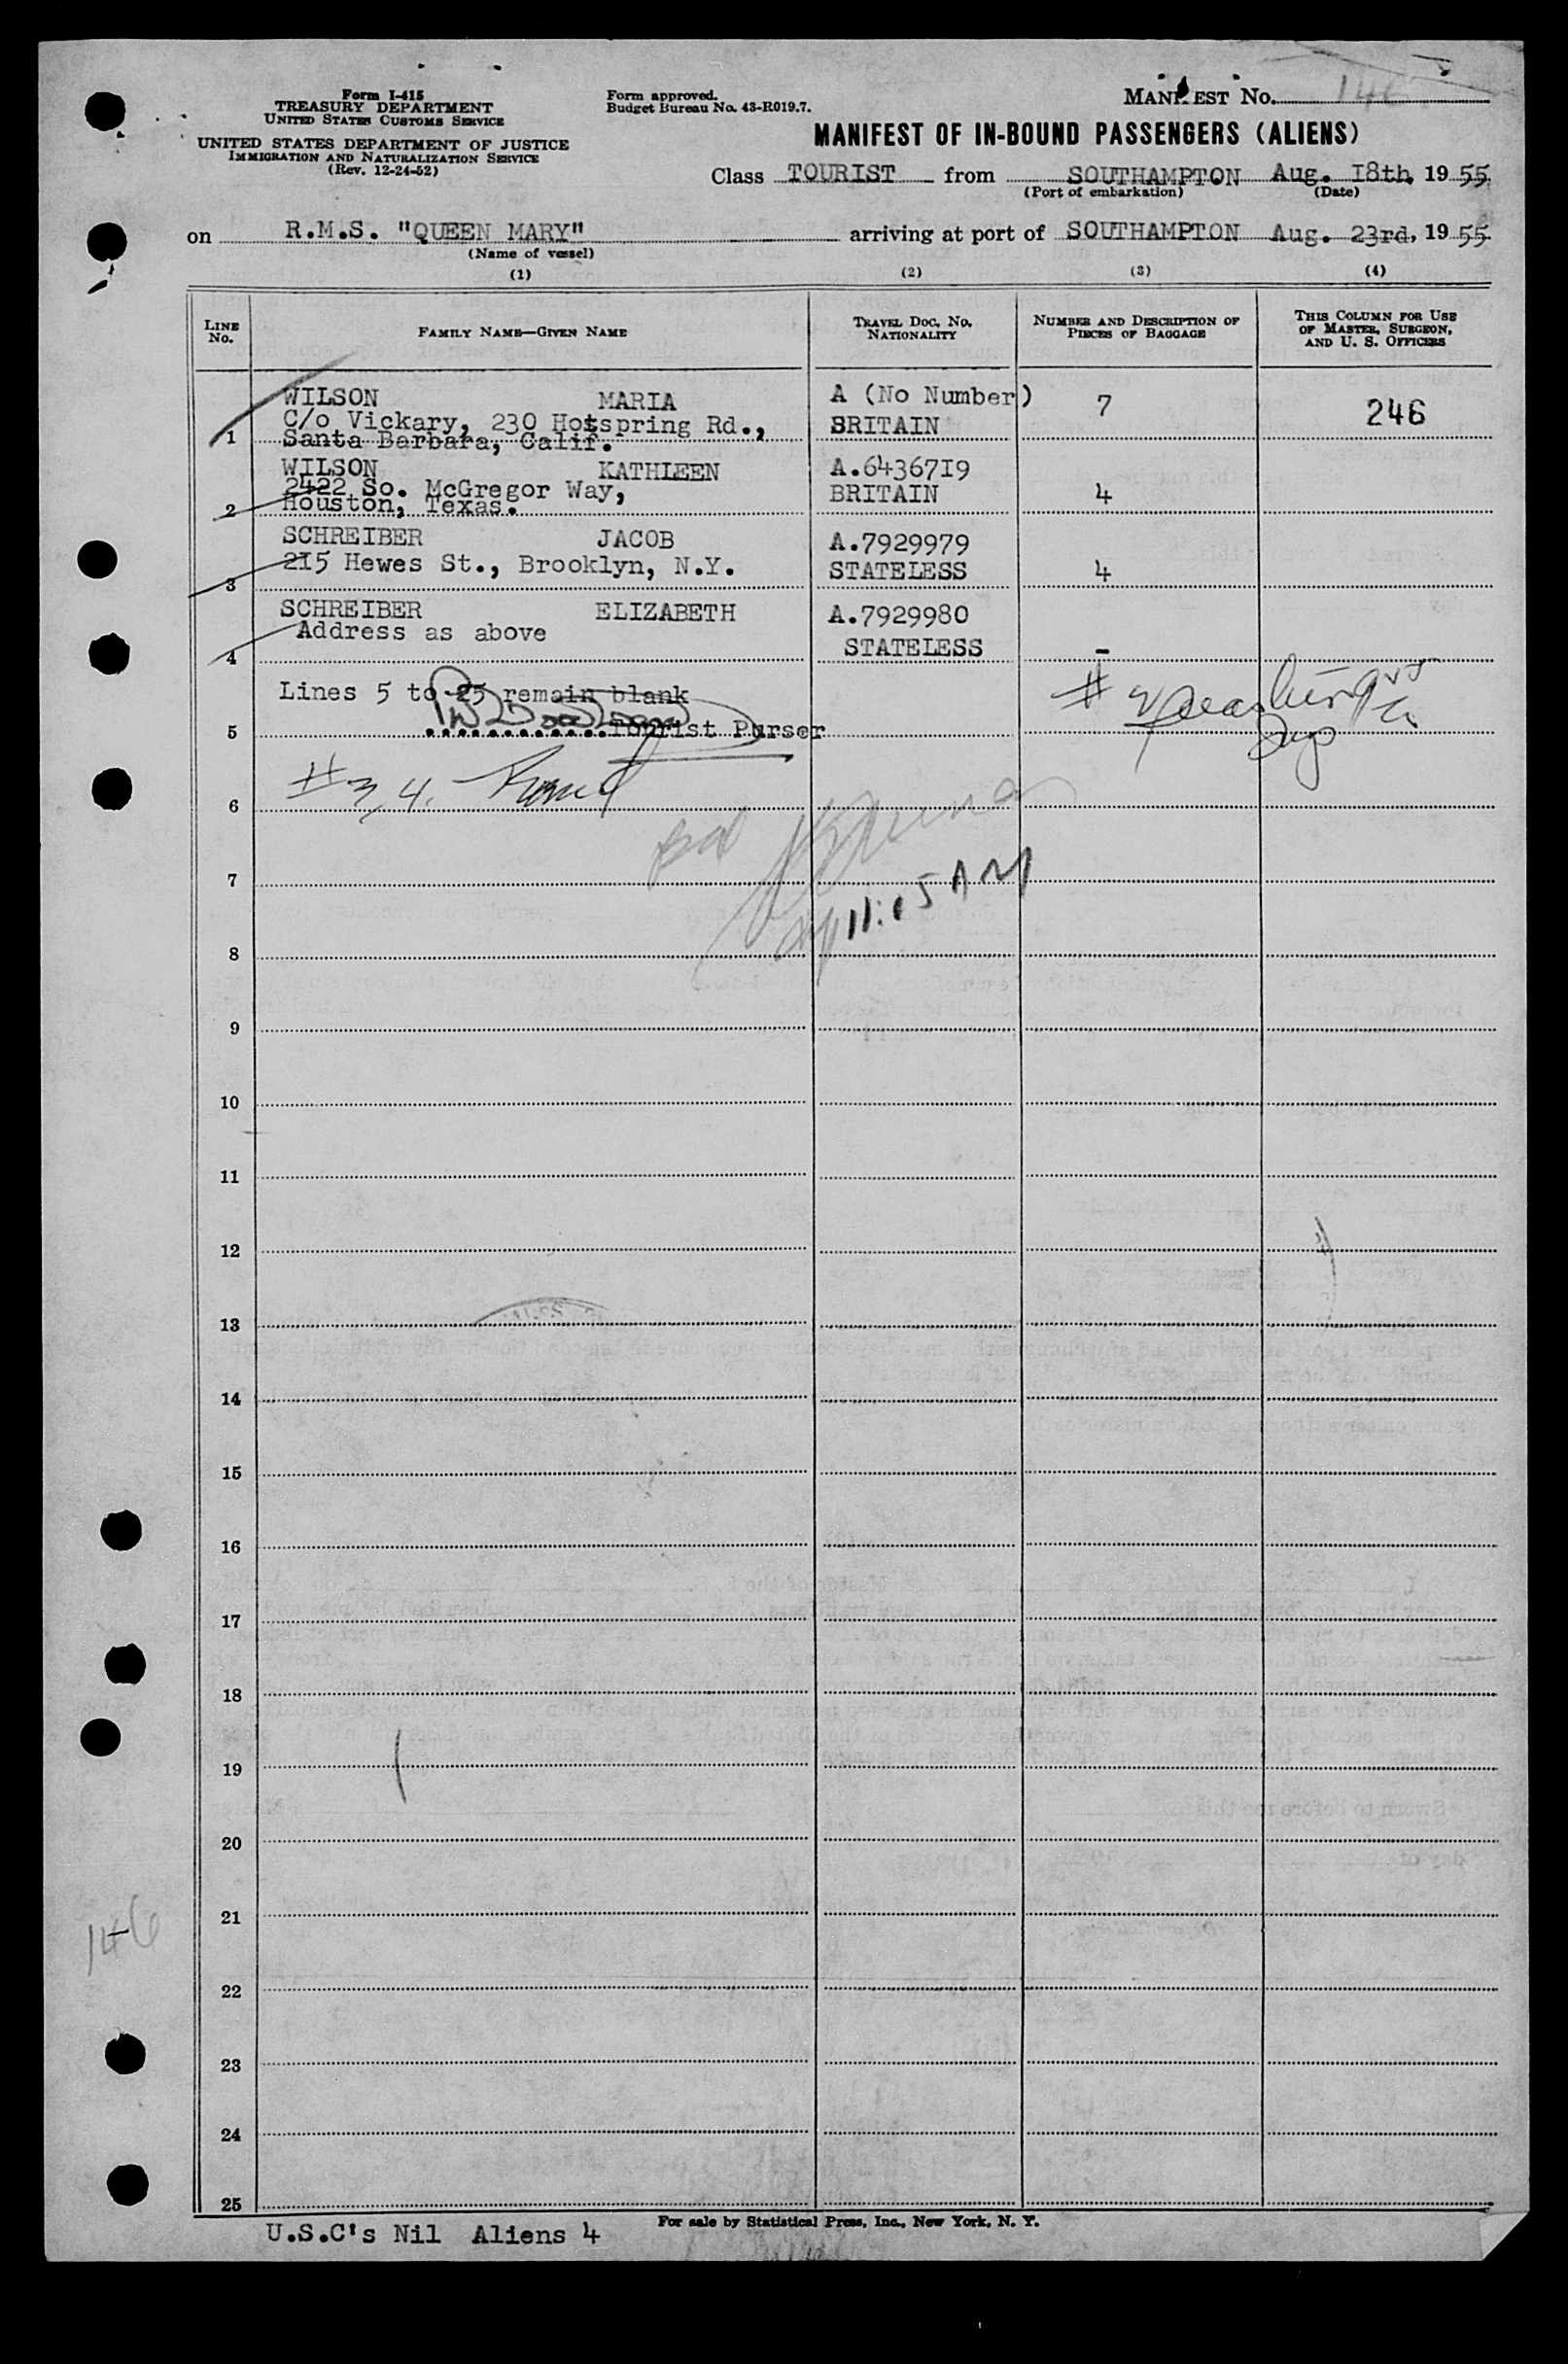 Form I-415
TREASURY DEPARTMENT
UNITED STATES CUSTOMS SERVICE
UNITED STATES DEPARTMENT OF JUSTICE
IMMIGRATION AND NATURALIZATION SERVICE
(Rev. 12-24-52)
Form approved.
Budget Bureau No. 43-R019.7.
MANIFEST No. 146
MANIFEST OF IN-BOUND PASSENGERS (ALIENS)
Class TOURIST from SOUTHAMPTON Aug. I8th, 1955
(Port of embarkation) (Date)
on R.M.S. "QUEEN MARY" arriving at port of SOUTHAMPTON Aug. 23rd, 1955
(Name of vessel)
(1) (2) (3) (4)
LINE No. FAMILY NAME—GIVEN NAME TRAVEL DOC. No. NATIONALITY NUMBER AND DESCRIPTION OF PIECES OF BAGGAGE THIS COLUMN FOR USE OF MASTER, SURGEON, AND U. S. OFFICERS
WILSON MARIA A (No Number) 7 246
C/o Vickary, 230 Hotspring Rd., BRITAIN
1 Santa Barbara, Calif.
WILSON KATHLEEN A.6436719
2422 So. McGregor Way, BRITAIN 4
2 Houston, Texas.
SCHREIBER JACOB A.7929979
215 Hewes St., Brooklyn, N.Y. STATELESS 4
3
SCHREIBER ELIZABETH A.7929980
Address as above STATELESS -
4
Lines 5 to 25 remain blank
5 Tourist Purser
#3,4.
6
7
11:15 AM
8
9
10
11
12
13
14
15
16
17
18
19
20
21
146
22
23
24
25
For sale by Statistical Press, Inc., New York, N. Y.
U.S.C's Nil Aliens 4